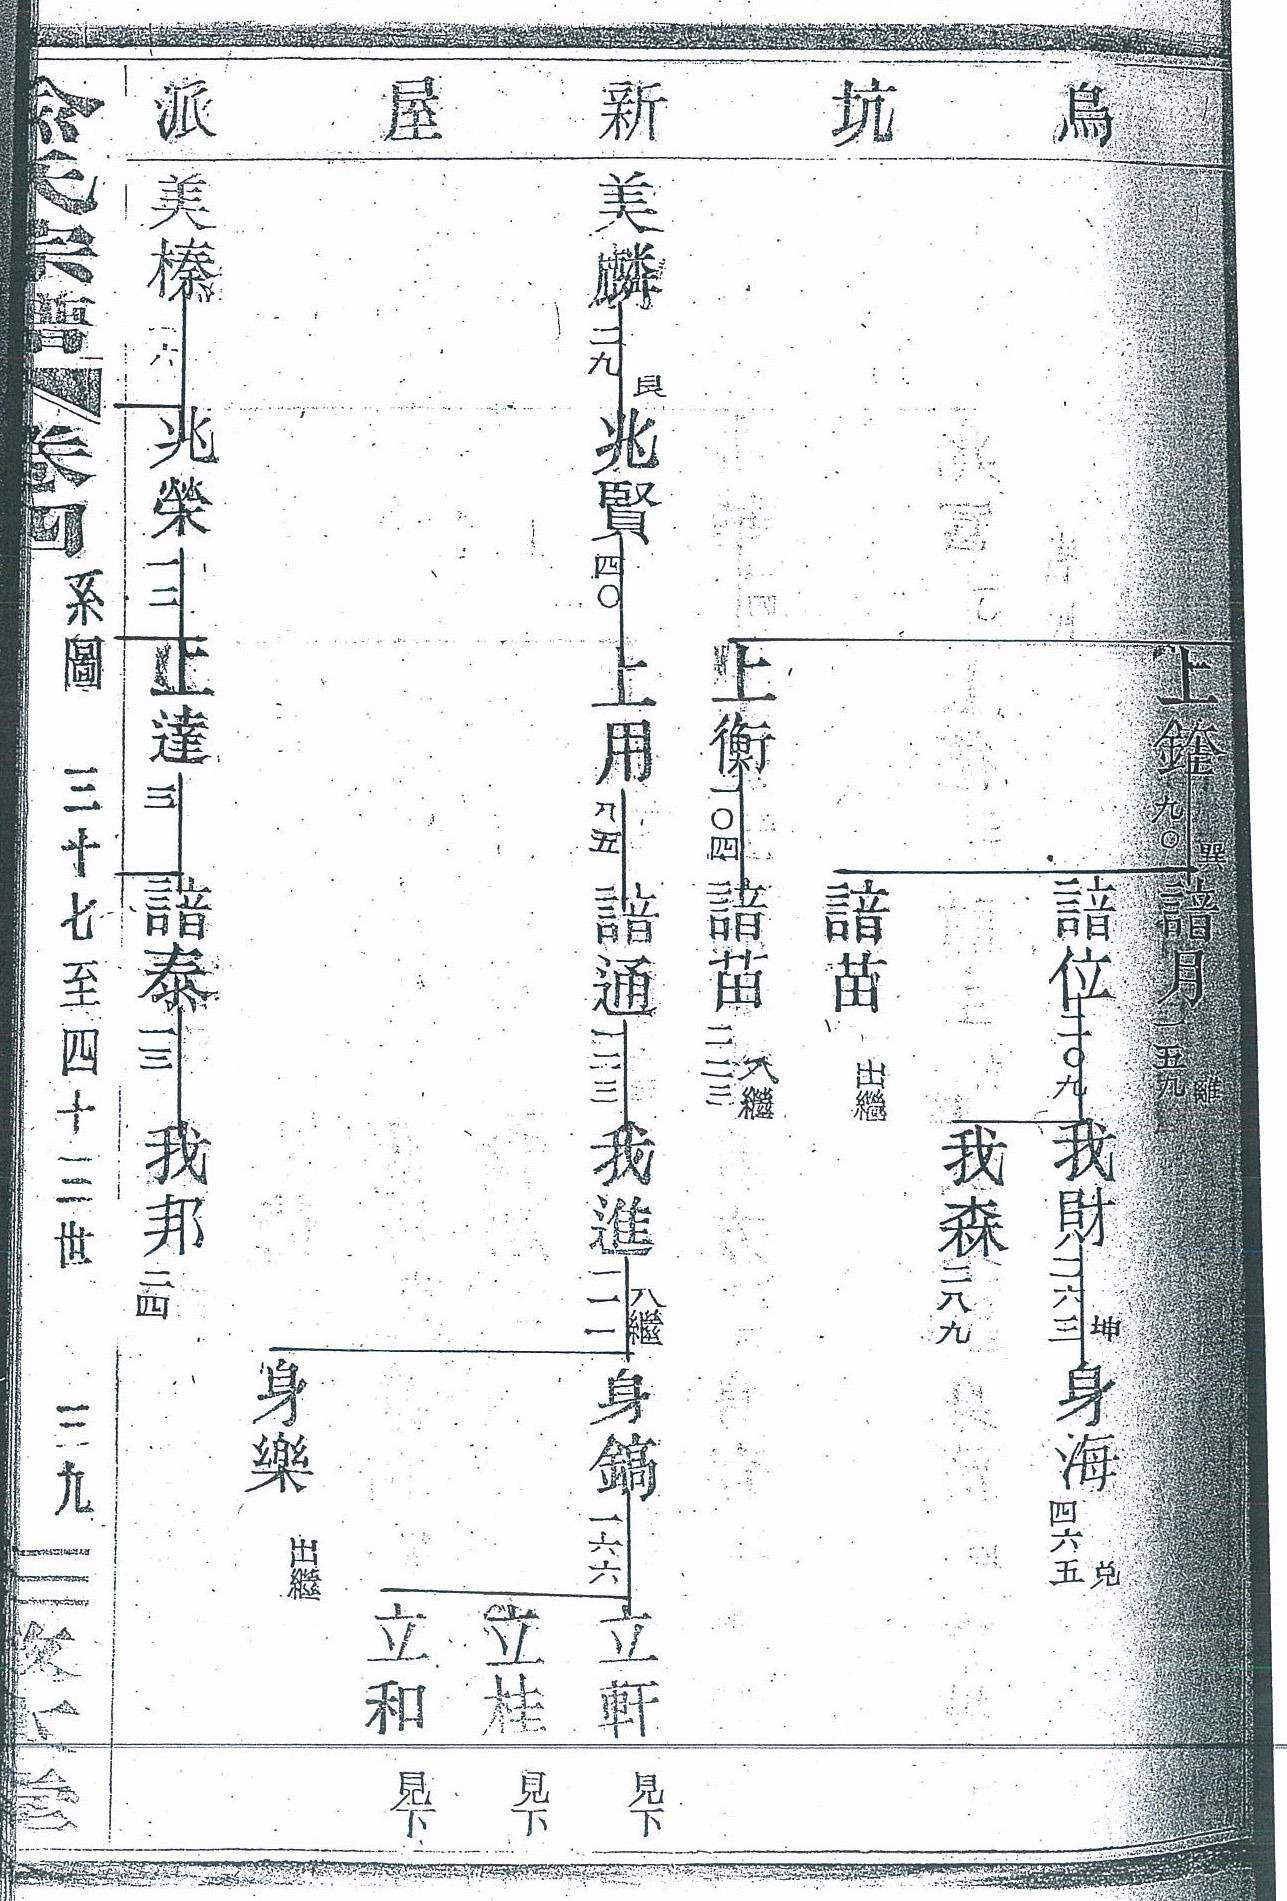 烏坑新屋派
上
九〇
巽
諳月
一五九
離
諳位
二〇九
我財
二六三
坤
身海
四六五
兌
我森
二八九
諳苗
出繼
上衡
一〇四
諳苗
二二三
入繼
美麟
二九
艮
兆賢
四〇
上用
八五
諳通
一二三
我進
一一一
入繼
身鎬
一六六
立軒
見下
立桂
見下
立和
見下
身樂
出繼
美榛
一六
兆榮
一二
上達
三
諳泰
一三
我邦
二四
俞氏宗譜
卷四
系圖
三十七至四十三世
三九